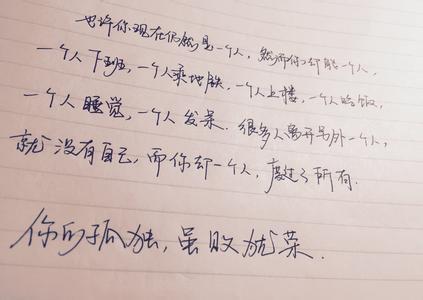 也许你现在仍然是一个人，然而你却能一个人，
一个人下班，一个人乘地铁，一个人上楼，一个人吃饭，
一个人睡觉，一个人发呆．很多人离开另外一个人，
就没有自己，而你却一个人，度过了所有．
你的孤独，虽败犹荣．